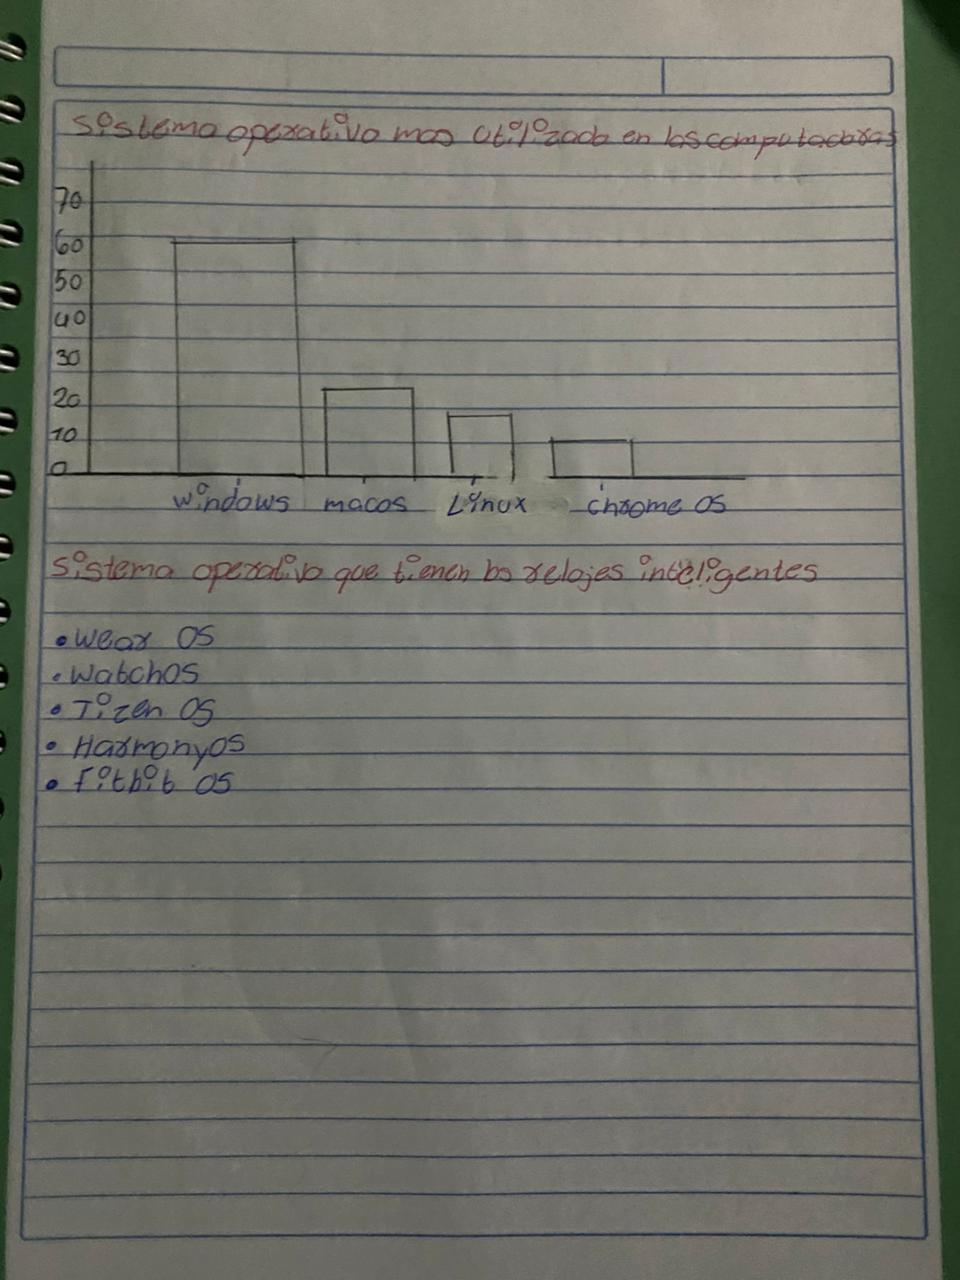 Sistema operativo mas utilizado en las computadoras
70
60
50
40
30
20
10
0
windows macos Linux chrome OS
Sistema operativo que tienen los relojes inteligentes
• Wear OS
• WatchOS
• Tizen OS
• HarmonyOS
• Fitbit OS